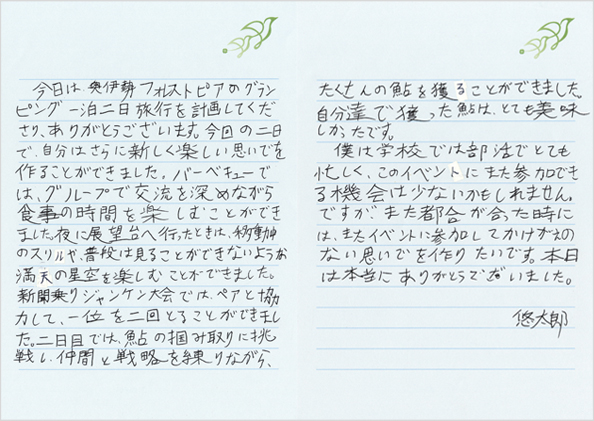 今日は、奥伊勢フォレストピアのグラン
ピング一泊二日旅行を計画してくだ
さり、ありがとうございます。今回の二日
で、自分はさらに新しく楽しい思いでを
作ることができました。バーベキューで
は、グループで交流を深めながら
食事の時間を楽しむことができ
ました。夜に展望台へ行ったときは、移動中
のスリルや、普段は見ることができないような
満天の星空を楽しむことができました。
新聞乗りジャンケン大会では、ペアと協
力して、一位を二回とることができまし
た。二日目では、鮎の掴み取りに挑
戦し、仲間と戦略を練りながら、
たくさんの鮎を獲ることができました。
自分達で獲った鮎は、とても美味
しかったです。
僕は学校では部活でとても
忙しく、このイベントにまた参加でき
る機会は少ないかもしれません。
ですが、また都合が合った時に
は、またイベントに参加してかけがえの
ない思いでを作りたいです。本日
は本当にありがとうございました。
悠太郎